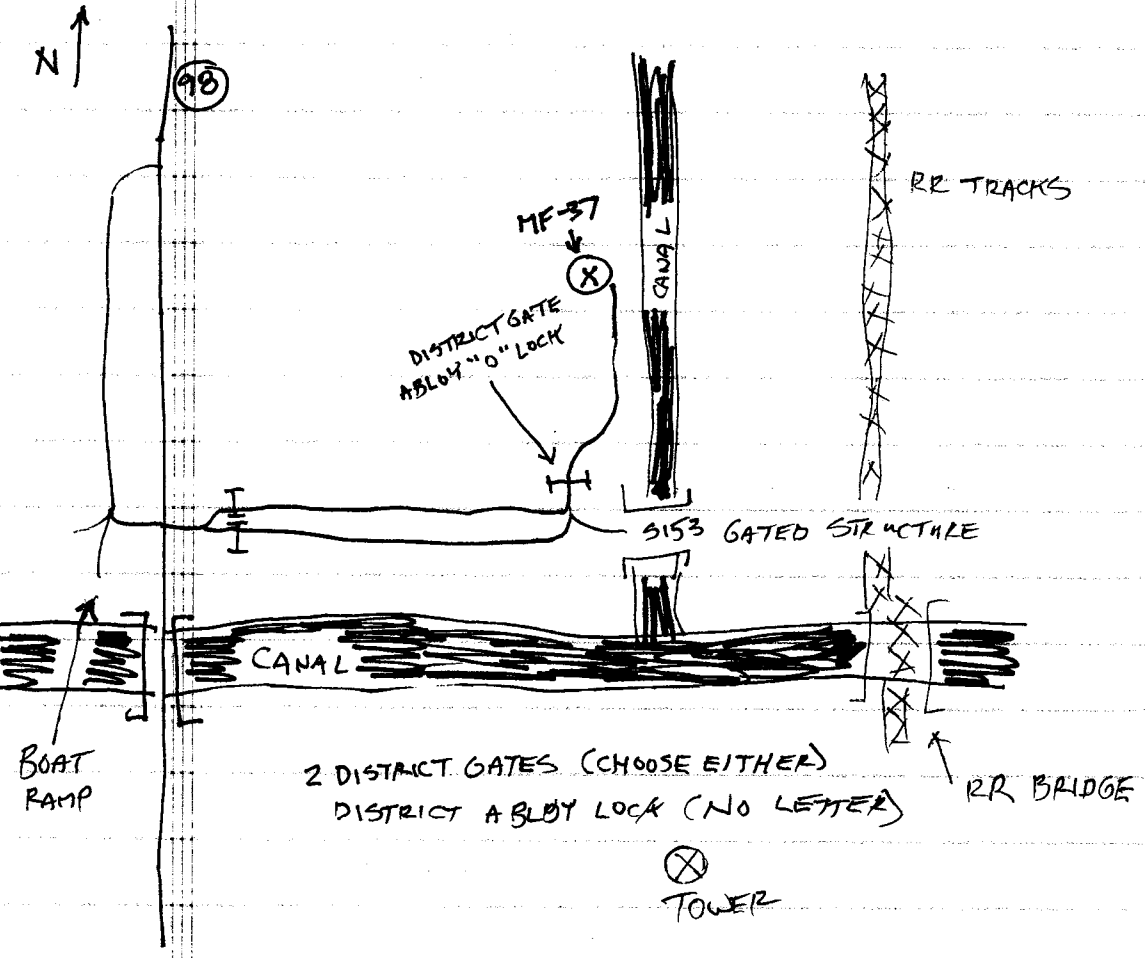 N
98
RR TRACKS
MF-37
X
CANAL
DISTRICT GATE
ABLOY "O" LOCK
S153 GATED STRUCTURE
CANAL
BOAT
RAMP
2 DISTRICT GATES (CHOOSE EITHER)
DISTRICT ABLOY LOCK (NO LETTER)
RR BRIDGE
X
TOWER